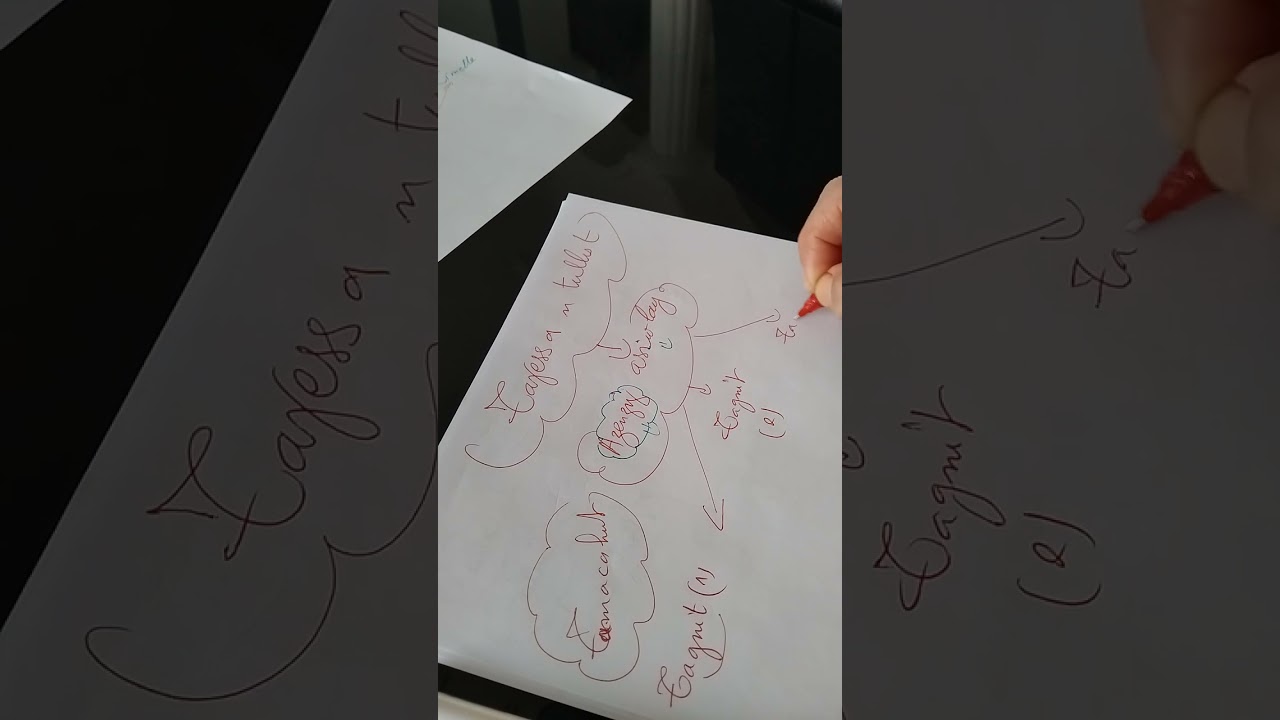 Tayessa n tullist
asiwlay
Azenziɣ
Tamacahut
Tagnit (1)
Tagnit
(2)
Ta